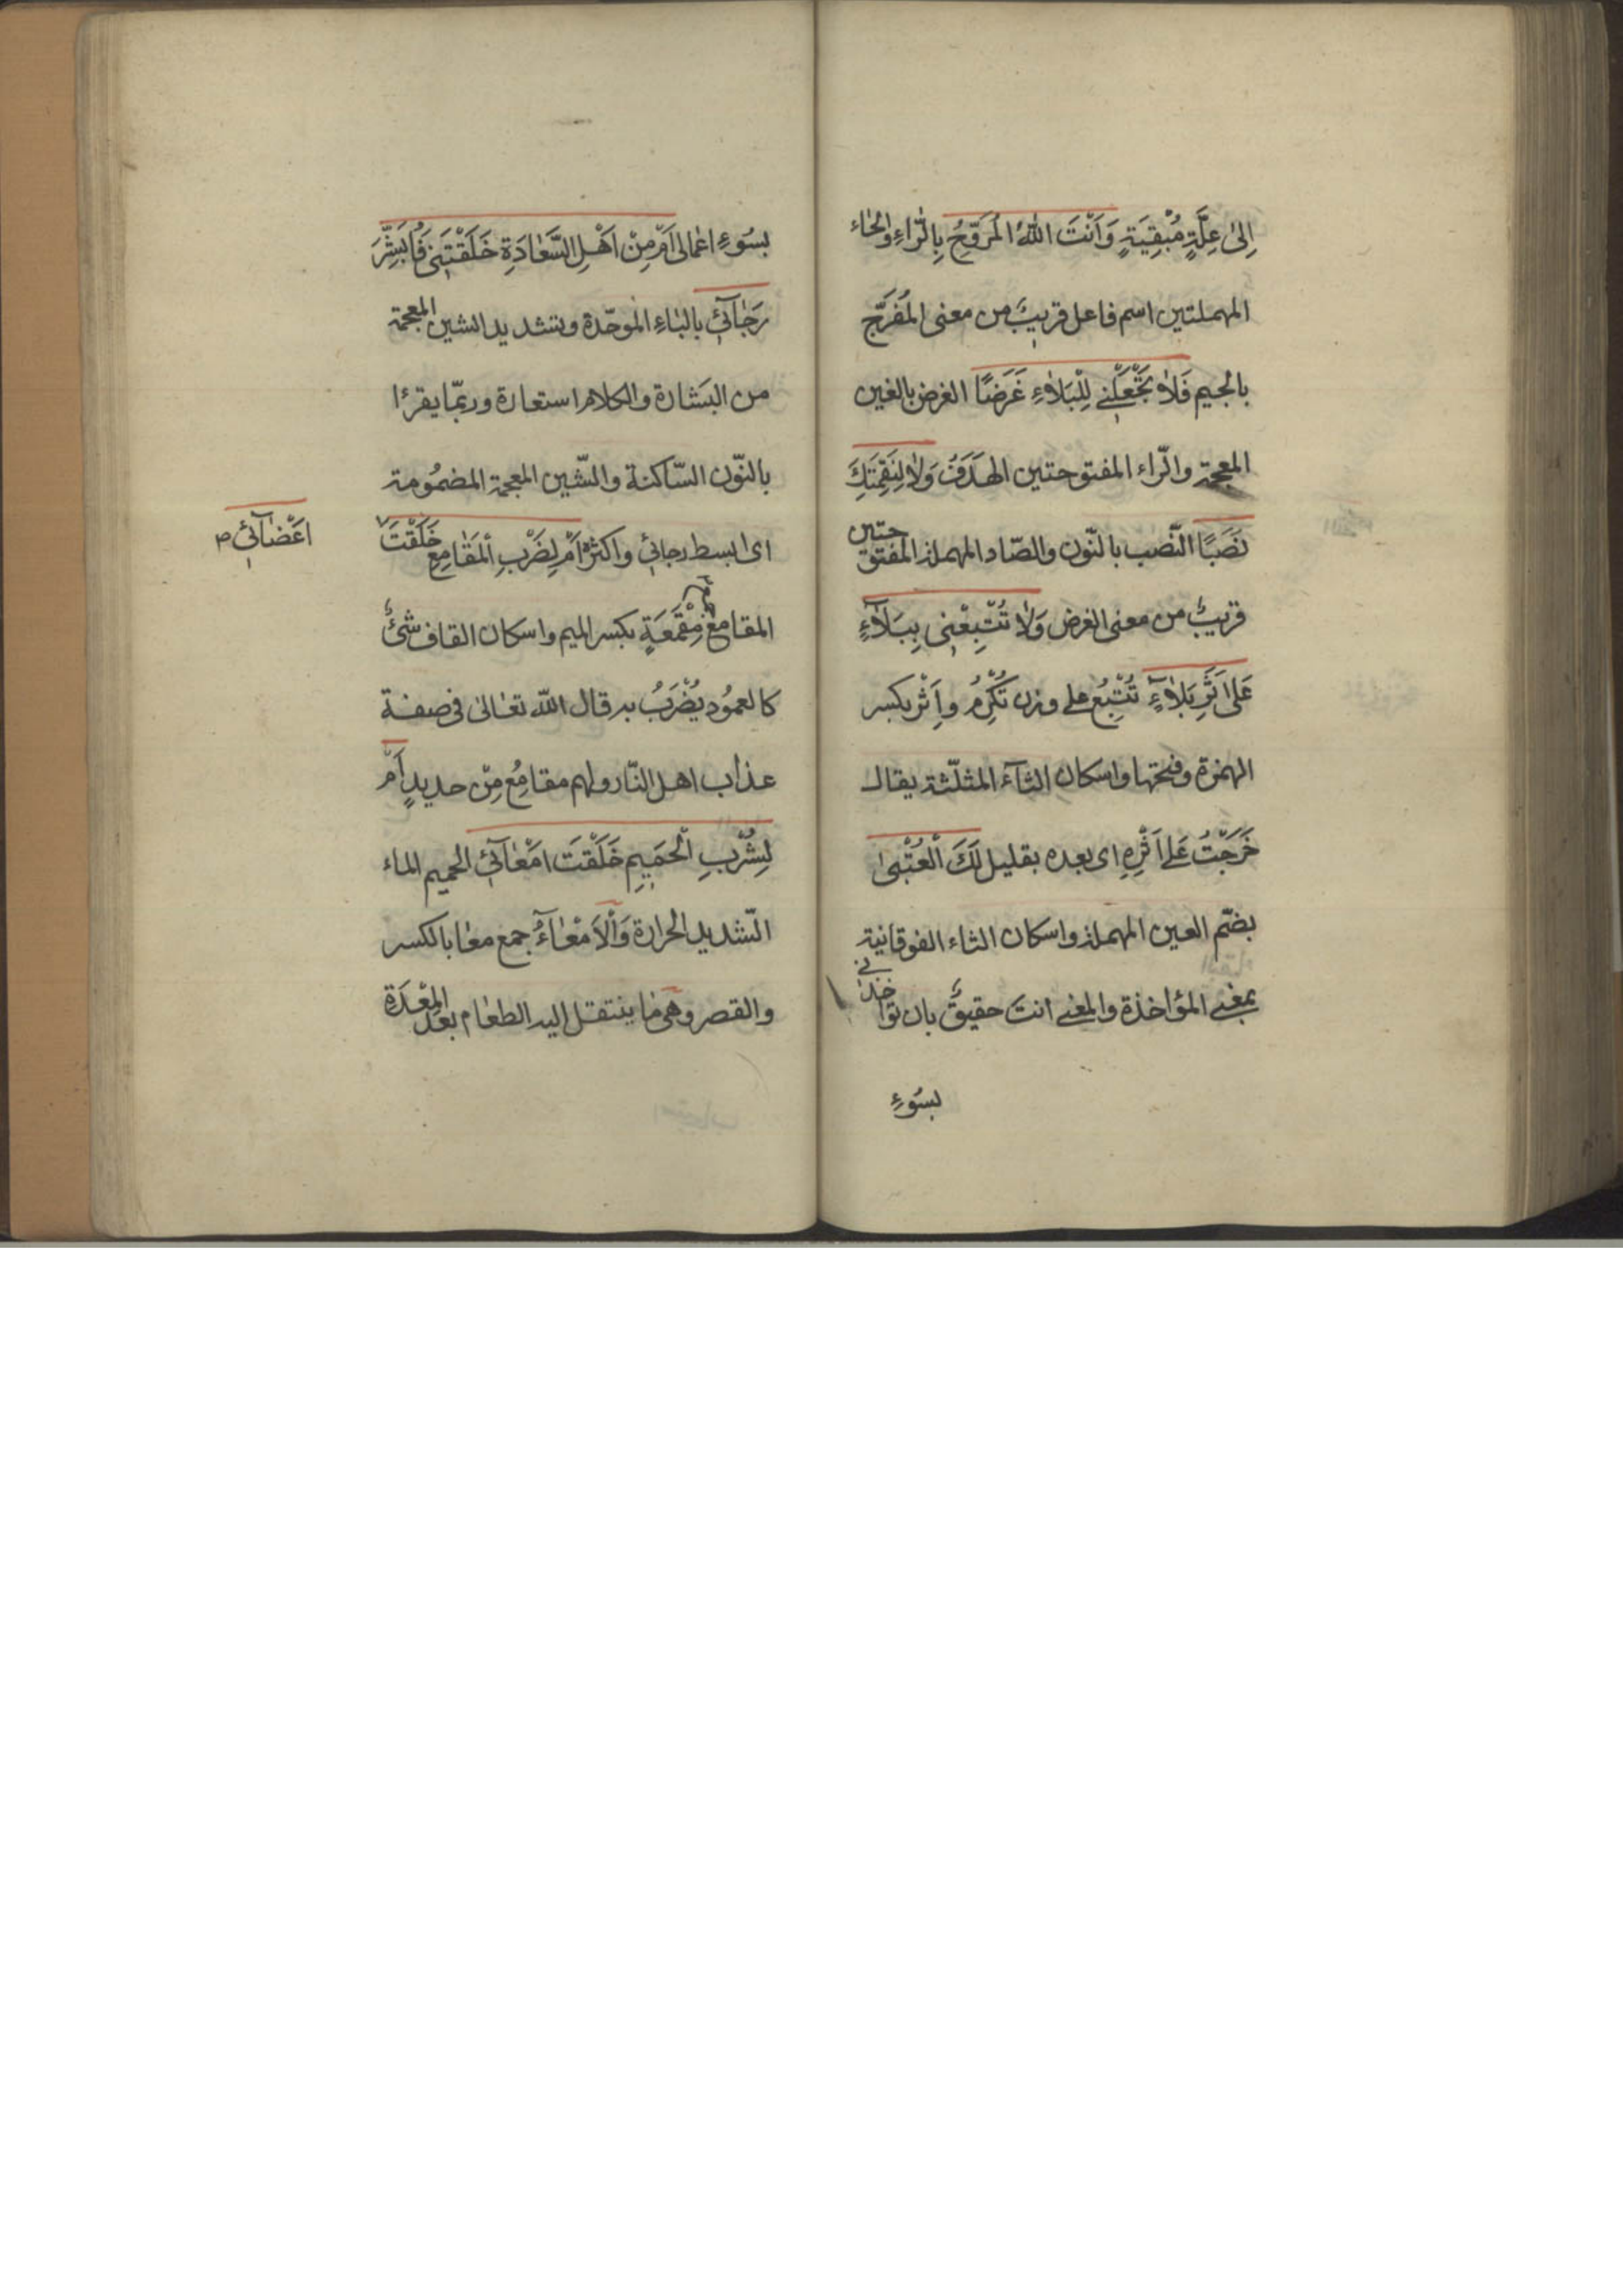 اِلىٰ عِلَّةٍ مُبْقِيَةٍ وَاَنْتَ اللّٰهُ الْمُرَوِّحُ بِالرّاءِ والحاء
المهملتين اسم فاعل قريبٌ من معنى المُفَرِّج
بالجيم فَلاٰ تَجْعَلْنى لِلْبَلاٰءِ غَرَضًا الغرض بالغين
المعجمة والرّاء المفتوحتين الهَدَفُ وَلاٰ لِنَقِمَتِكَ
نَصَبًا النّصب بالنّون والصّاد المهملة المفتوحتين
قريبٌ من معنى الغرض وَلاٰ تُتْبِعْنى بِبَلاٰءٍ
عَلىٰ اَثَرِ بَلاٰءٍ تُتْبِعُ على وزن تُكْرِمُ واِثْر بكسر
الهمزة وفتحها واسكان الثآء المثلّثة يقال
خَرَجْتُ عَلى اَثْرِهِ اى بعده بقليل لَكَ الْعُتْبىٰ
بضّم العين المهملة واسكان التاء الفوقانية
بمعنى المؤاخذة والمعنى انتَ حقيقٌ بان تؤاخذنى
بسُوءِ
بسُوءِ اعمالى اَمْ مِنْ اَهْلِ السَّعٰادَةِ خَلَقْتَنى فَاُبَشِّرَ
رَجٰآئى بالبٰاءِ الموحّدة وبتشديد الشين المعجمة
من البَشارة والكلام استعارة وربّما يقرءا
بالنّون السّاكنة والشّين المعجمة المضمُومة
اى ابسط رجائى واكثره اَمْ لِضَرْبِ الْمَقٰامِعِ خَلَقْتَ
اَعْضٰآئى ص
المقامع جمع مِقْمَعَةٍ بكسر الميم واسكان القاف شئٌ
كالعمُود يُضْرَبُ به قال اللّه تعٰالىٰ فى صفة
عذاب اهل النّار ولهم مقامِعُ مِنْ حديدٍ اَمْ
لِشُرْبِ الْحَميمِ خَلَقْتَ اَمْعٰآئى الحميم الماء
الشّديد الحرارة وَالْاَمْعٰآءُ جمع معٰا بالكسر
والقصر وهى مٰا ينتقل اليه الطعٰام بعد المِعْدَة